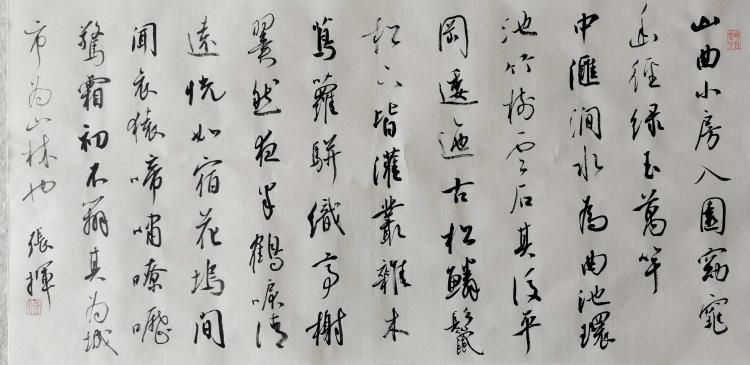 山曲小房入園窈窕
幽徑绿玉萬竿
中匯澗水為曲池環
池竹樹云石其後平
岡逶迤古松鱗鬣
松下皆灌叢雜木
蔦蘿駢織亭榭
翼然夜半鶴唳清
遠恍如宿花塢間
聞哀猿啼哨嘹嚦
驚霜初不辨其為城
市為山林也 張揮